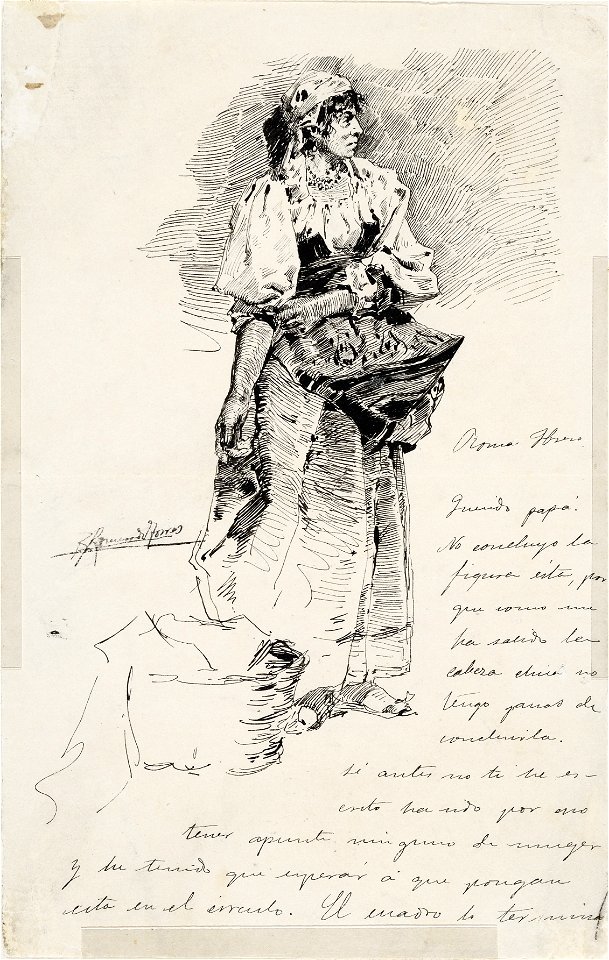 Roma Ibrero
Querido papá.
No concluyo la
figura esta, por
que como me
ha salido la
cabeza chica no
tengo ganas de
concluirla.
Si antes no ti he es-
crito ha sido por no
tener apunte ninguno de muger
y he tenido que esperar á que pongan
esta en el círculo. El cuadro lo termina